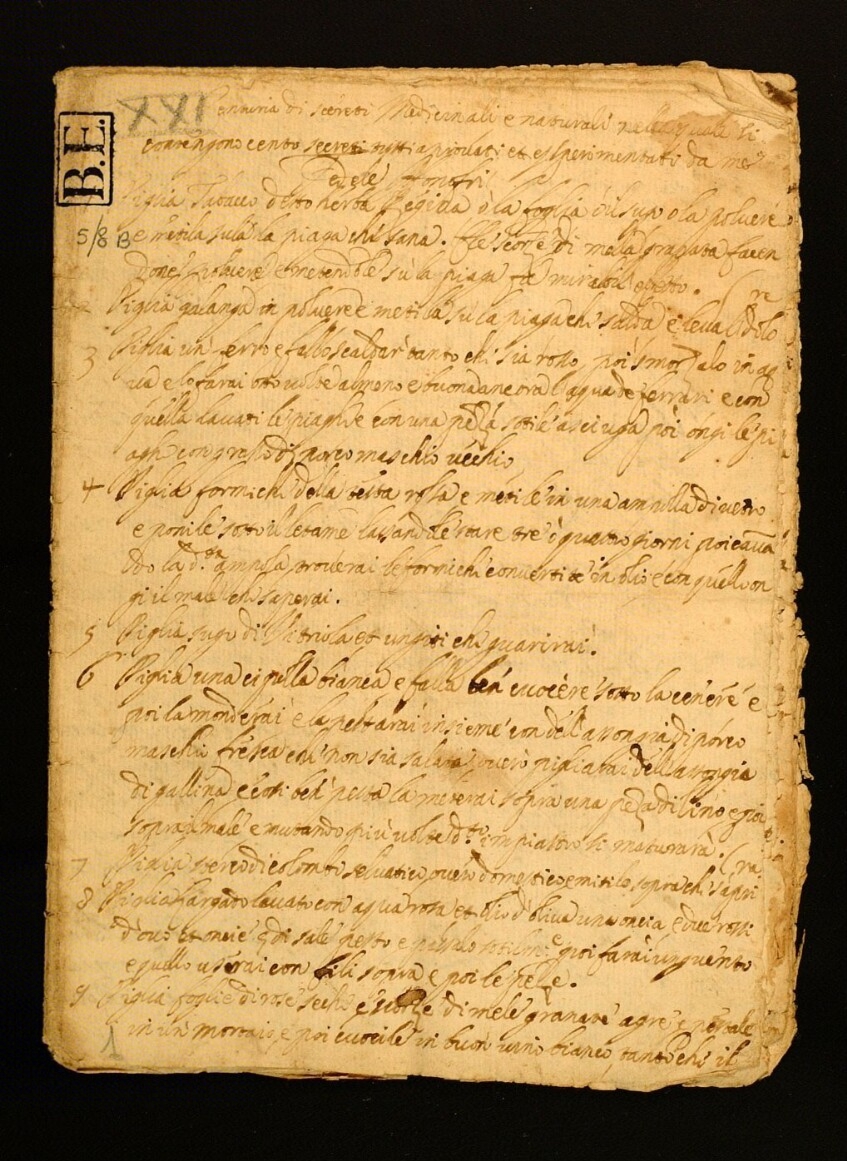 XXI
B.E.
5/8 B
Centuria di secreti Medicinali e naturali nella quale si
contengono cento secreti tutti aprovati et esperimentati da me
Fedele Onofri
Piglia Tabacco detto herba Regina o la foglia o il sugo o la polvere
e metila sula la piaga chi sana. Ele scorze di mela granata facen
done polvere e metendole sù la piaga fà mirabil effetto.
2 Piglia galanga in polvere e metila su la piaga chi salda e leva il dolo(re
3 Piglia un ferro e fallo scaldar tanto chi sia rosso poi smorzalo in aq
ua e lo farai otto volte almeno e buona ancora l'aqua de ferrari e con
quella lavati le piaghe e con una pezza sotile asciuga poi ongi le pi
aghe con grasso di porco maschio vechio
4 Piglia formichi della testa rossa e metile in una ampulla di vetro
e ponile sotto il letame lassandole stare tre o quatro giorni poi cava
do la d.a ampola troverai le formichi convertite in olio e con quello on
gi il male chi sanerai.
5 Piglia sugo di Vitriola et ungiti chi guarirai.
6 Piglia una cipulla bianca e falla ben cuocere sotto la cenere e
poi la monderai e la pestarai insieme con dell'assongia di porco
maschio fresca chi non sia salata overo pigliarai dell'assongia
di gallina e cosi ben pesta la meterai sopra una peza di lino e poi
sopra il male e mutando più volte d.to impiastro si maturarà.
7 Piglia sterco di colombi selvatico overo domestico e mitilo sopra chi s'apri(ra
8 Piglia largado lavato con aqua rosa et olio d'oliva un'oncia e due rossi
d'ovo et oncie di sale pesto e passato sotilm.e poi farai unguento
e quello userai con fili sopra e poi le peze.
9 Piglia foglie di rose sechi e scorze di mele granate agre e pestale
in un mortaio e poi cuocile in buon vino bianco tanto chi il
1